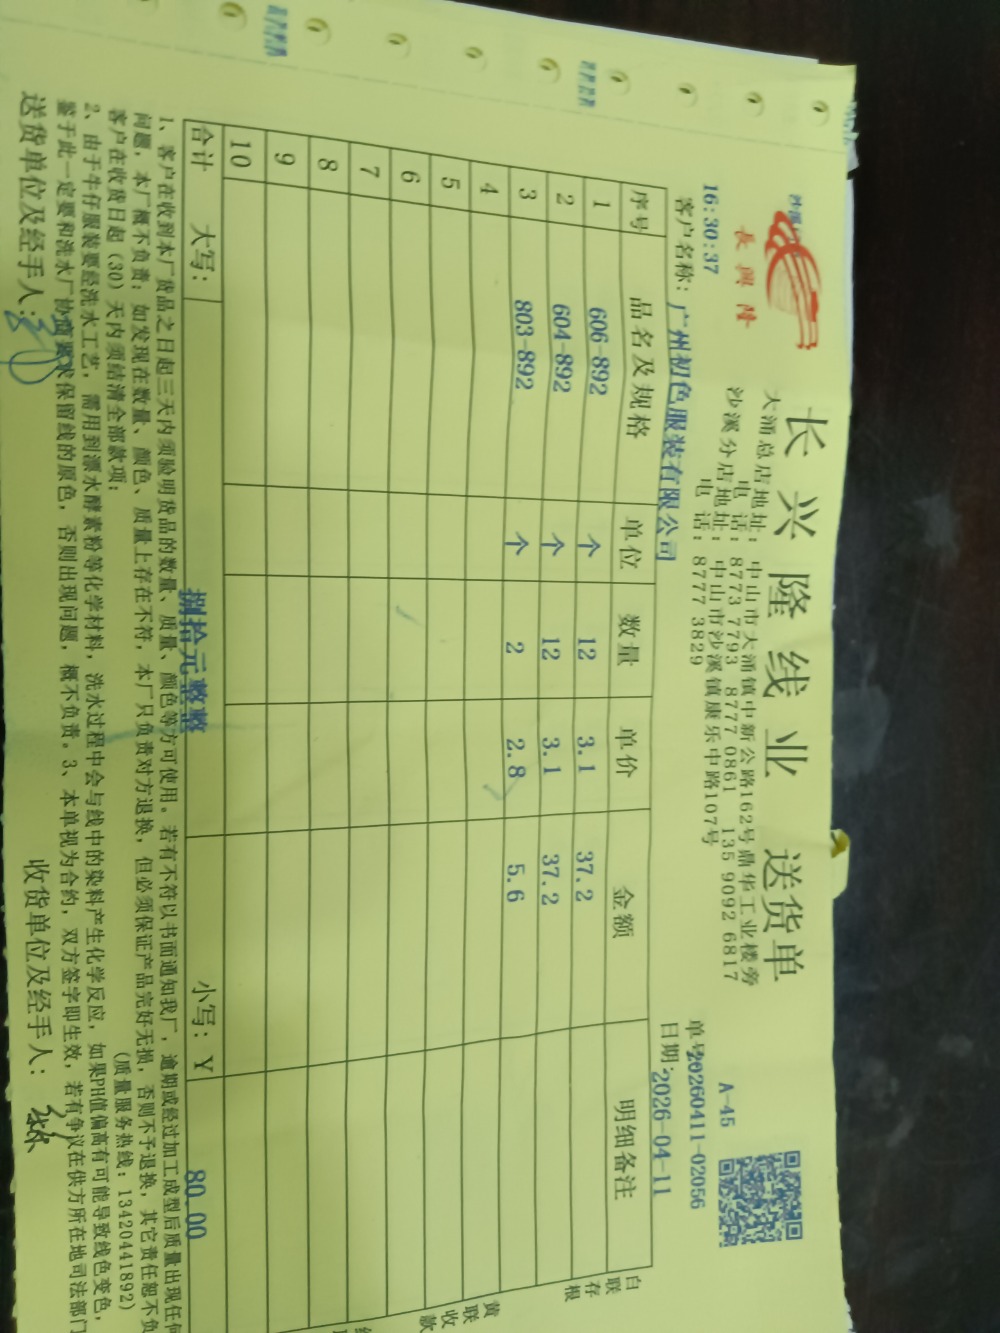 長興隆
长兴隆线业 送货单
大涌总店地址: 中山市大涌镇中新公路162号鼎华工业楼旁
电 话: 8773 7793 8777 0861 135 9092 6817
沙溪分店地址: 中山市沙溪镇康乐中路107号
电 话: 8777 3829
A-45
16:30:37
单号20260411-02056
客户名称: 广州初色服装有限公司
日期:2026-04-11
序号 品名及规格 单位 数量 单价 金额 明细备注
1 606-892 个 12 3.1 37.2
2 604-892 个 12 3.1 37.2
3 803-892 个 2 2.8 5.6
4
5
6
7
8
9
10
合计 大写: 捌拾元整整 小写: Y 80.00
白联存根
黄联收款
1、客户在收到本厂货品之日起三天内须验明货品的数量、质量、颜色等方可使用。若有不符以书面通知我厂,逾期或经过加工成型后质量出现任何
问题,本厂概不负责;如发现在数量、颜色、质量上存在不符,本厂只负责对方退换,但必须保证产品完好无损,否则不予退换,其它责任恕不负
客户在收货日起(30)天内须结清全部款项;
(质量服务热线: 13420441892)
2、由于牛仔服装要经洗水工艺,需用到漂水酵素粉等化学材料,洗水过程中会与线中的染料产生化学反应,如果PH值偏高有可能导致线色变色,
鉴于此一定要和洗水厂协商要求保留线的原色,否则出现问题,概不负责。3、本单视为合约,双方签字即生效,若有争议在供方所在地司法部门
送货单位及经手人:
收货单位及经手人: